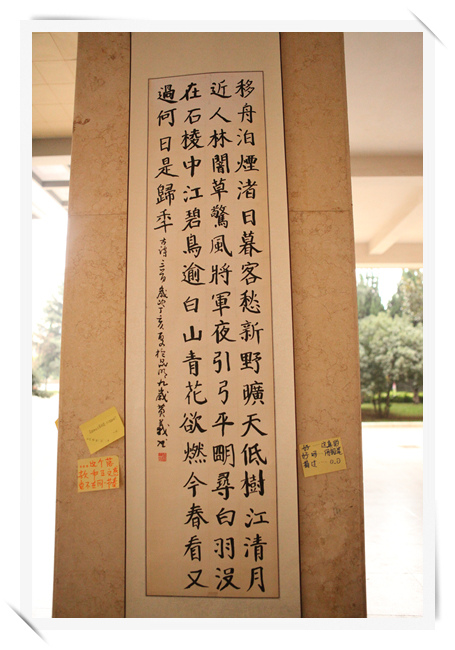 移舟泊煙渚日暮客愁新野曠天低樹江清月
近人林闇草驚風將軍夜引弓平明尋白羽沒
在石棱中江碧鳥逾白山青花欲燃今春看又
過何日是歸年
古詩三首歲次丁亥夏